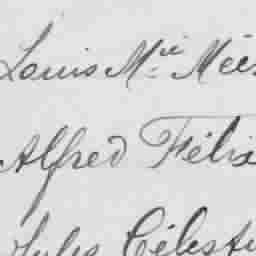 Louis Mie Mée
Alfred Félix
Jules Célesti